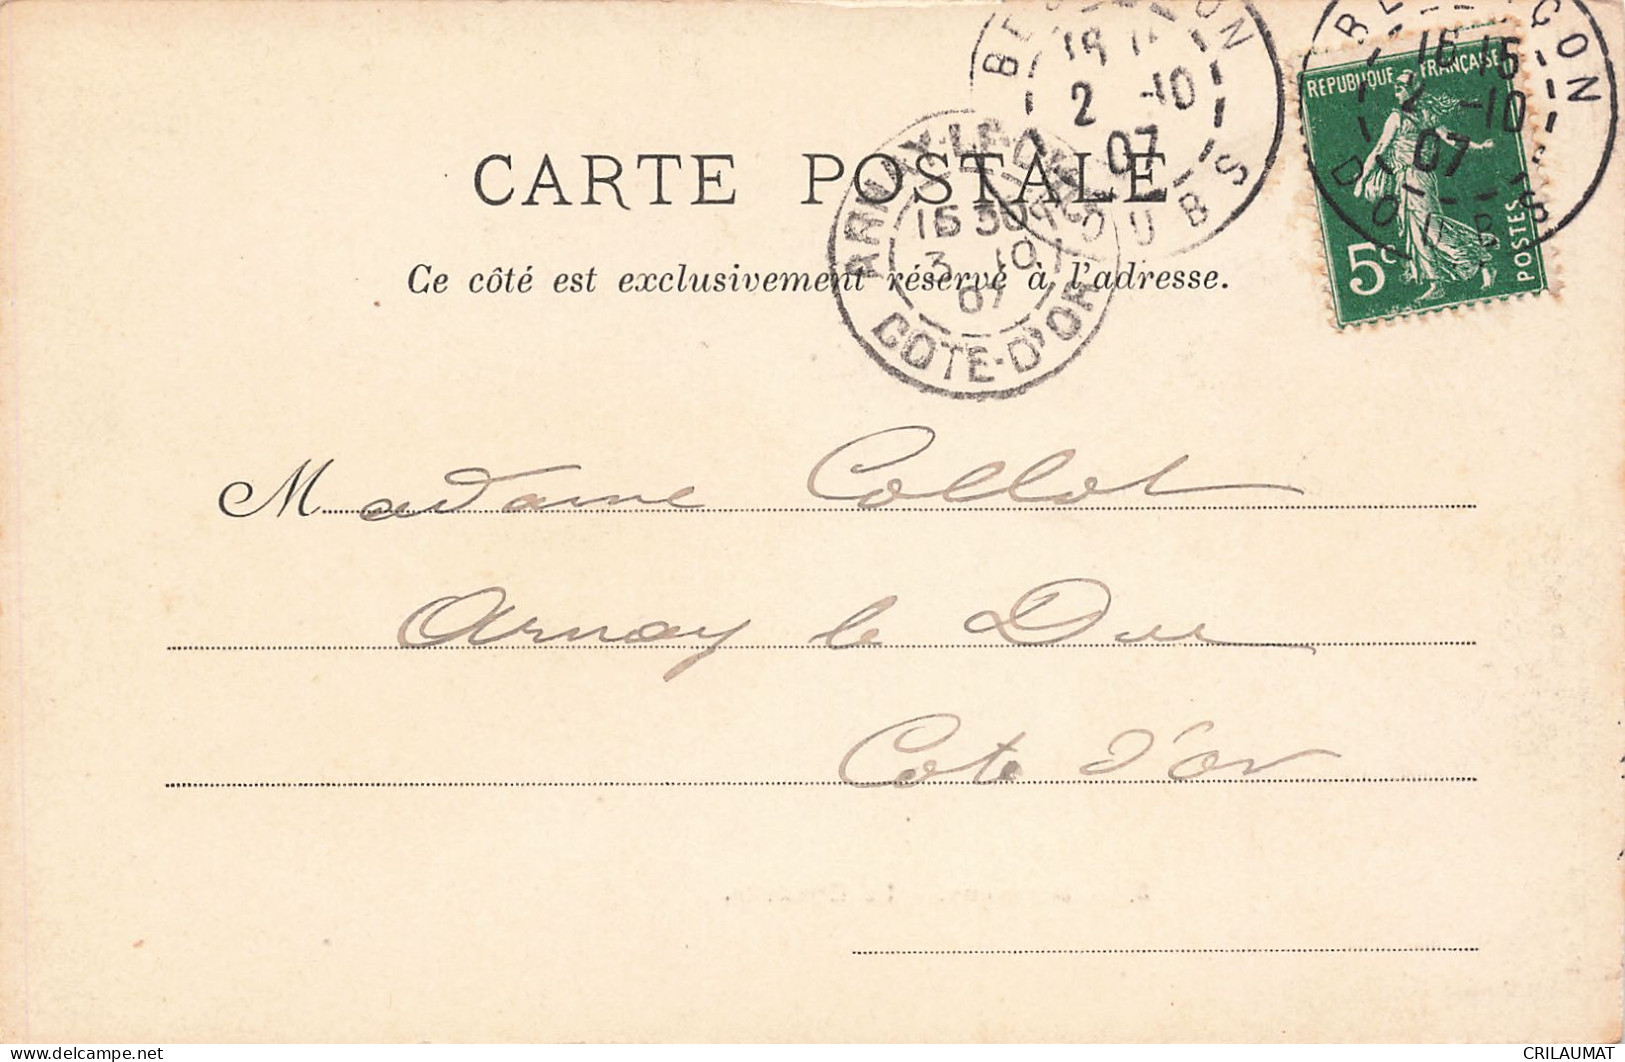 BESANÇON
DOUBS
19
2 -10
07
BESANÇON
DOUBS
16 15
2 -10
07
REPUBLIQUE FRANÇAISE
5c
POSTES
CARTE POSTALE
ARNAY-LE-DUC
15 30
3 10
07
COTE-D'OR
Ce côté est exclusivement réservé à l'adresse.
Madame Collot
Arnay le Duc
Cote d'or
CRILAUMAT